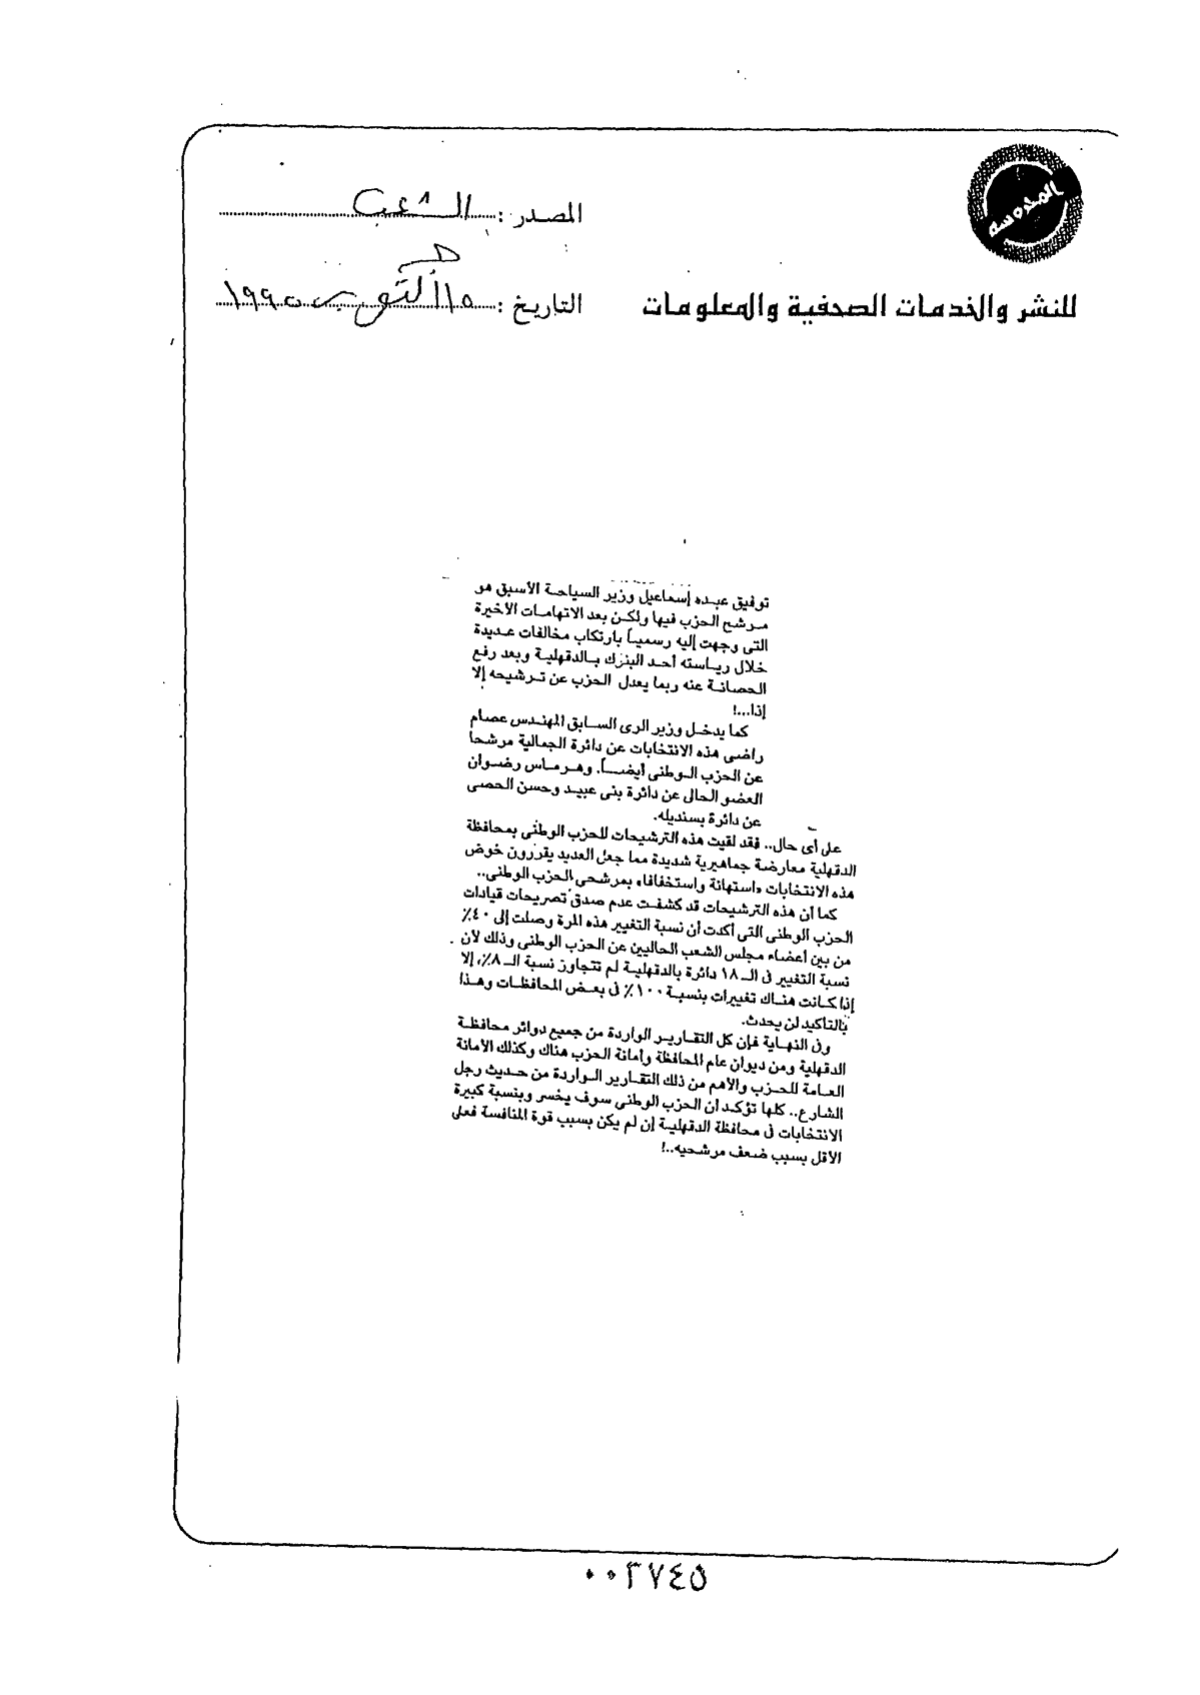 المحروسة
المصدر : الشعب
للنشر والخدمات الصحفية والمعلومات
التاريخ : ١٥ أكتوبر ١٩٩٥
توفيق عبده إسماعيل وزير السياحة الأسبق هو
مرشح الحزب فيها ولكن بعد الاتهامات الأخيرة
التى وجهت إليه رسمياً بارتكاب مخالفات عديدة
خلال رياسته أحد البنوك بالدقهلية وبعد رفع
الحصانة عنه ربما يعدل الحزب عن ترشيحه إلا
إذا...!
كما يدخل وزير الرى السابق المهندس عصام
راضى هذه الانتخابات عن دائرة الجمالية مرشحا
عن الحزب الوطنى أيضاً. وهرماس رضوان
العضو الحالى عن دائرة بنى عبيد وحسن الحصى
عن دائرة بسنديله.
على أى حال.. فقد لقيت هذه الترشيحات للحزب الوطنى بمحافظة
الدقهلية معارضة جماهيرية شديدة مما جعل العديد يقررون خوض
هذه الانتخابات «استهانة واستخفافا» بمرشحى الحزب الوطنى..
كما أن هذه الترشيحات قد كشفت عدم صدق تصريحات قيادات
الحزب الوطنى التى أكدت أن نسبة التغيير هذه المرة وصلت إلى ٤٠٪
من بين أعضاء مجلس الشعب الحاليين عن الحزب الوطنى وذلك لأن
نسبة التغيير فى الـ ١٨ دائرة بالدقهلية لم تتجاوز نسبة الـ ٨٪، إلا
إذا كانت هناك تغييرات بنسبة ١٠٠٪ فى بعض المحافظات وهذا
بالتأكيد لن يحدث.
وفى النهاية فإن كل التقارير الواردة من جميع دوائر محافظة
الدقهلية ومن ديوان عام المحافظة وأمانة الحزب هناك وكذلك الأمانة
العامة للحزب والأهم من ذلك التقارير الواردة من حديث رجل
الشارع.. كلها تؤكد أن الحزب الوطنى سوف يخسر وبنسبة كبيرة
الانتخابات فى محافظة الدقهلية إن لم يكن بسبب قوة المنافسة فعلى
الأقل بسبب ضعف مرشحيه..!
٠٠٣٧٤٥